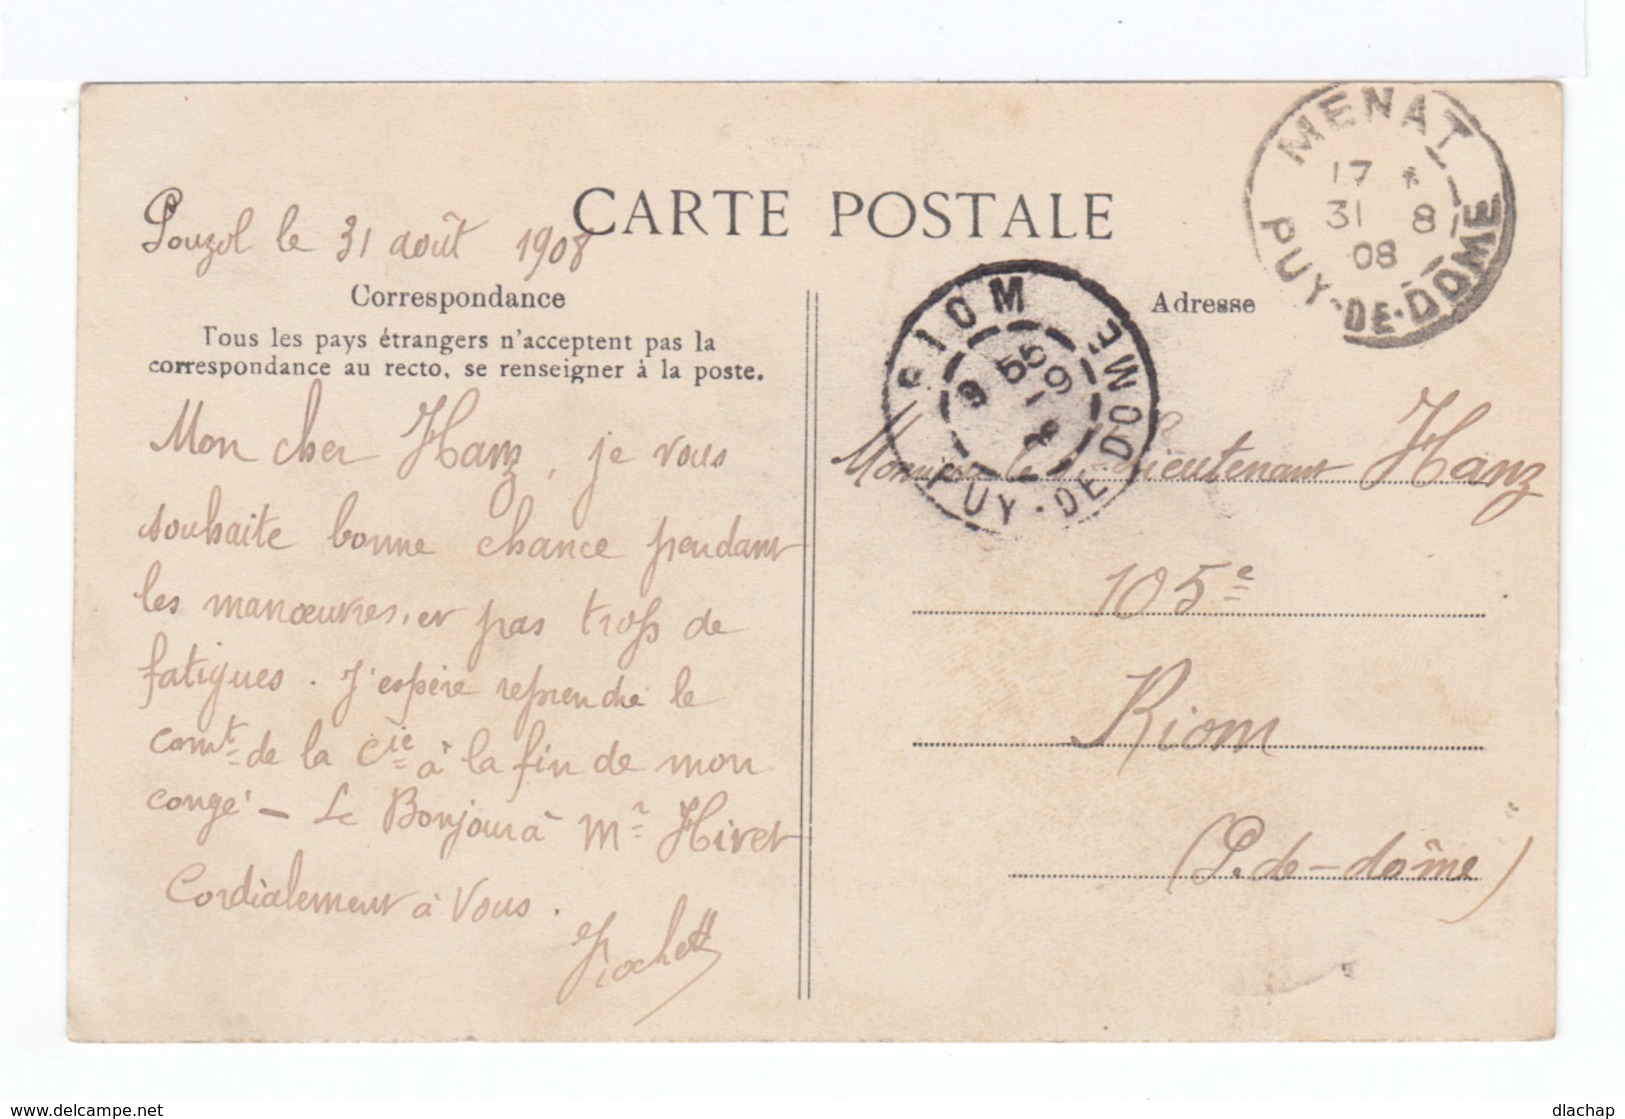 CARTE POSTALE
Pouzol le 31 août 1908
Correspondance
Tous les pays étrangers n'acceptent pas la
correspondance au recto, se renseigner à la poste.
Mon cher Hanz, je vous
souhaite bonne chance pendant
les manœuvres, et pas trop de
fatigues. J'espère reprendre le
comt de la Cie à la fin de mon
congé - Le Bonjour à Mr Hivet
Cordialement à Vous.
MENAT
17 *
31 8
08
PUY-DE-DOME
RIOM
9 55
1-9
PUY-DE-DOME
Adresse
Monsieur le Lieutenant Hanz
105e
Riom
(P.-de-dôme)
delcampe.net
dlachap